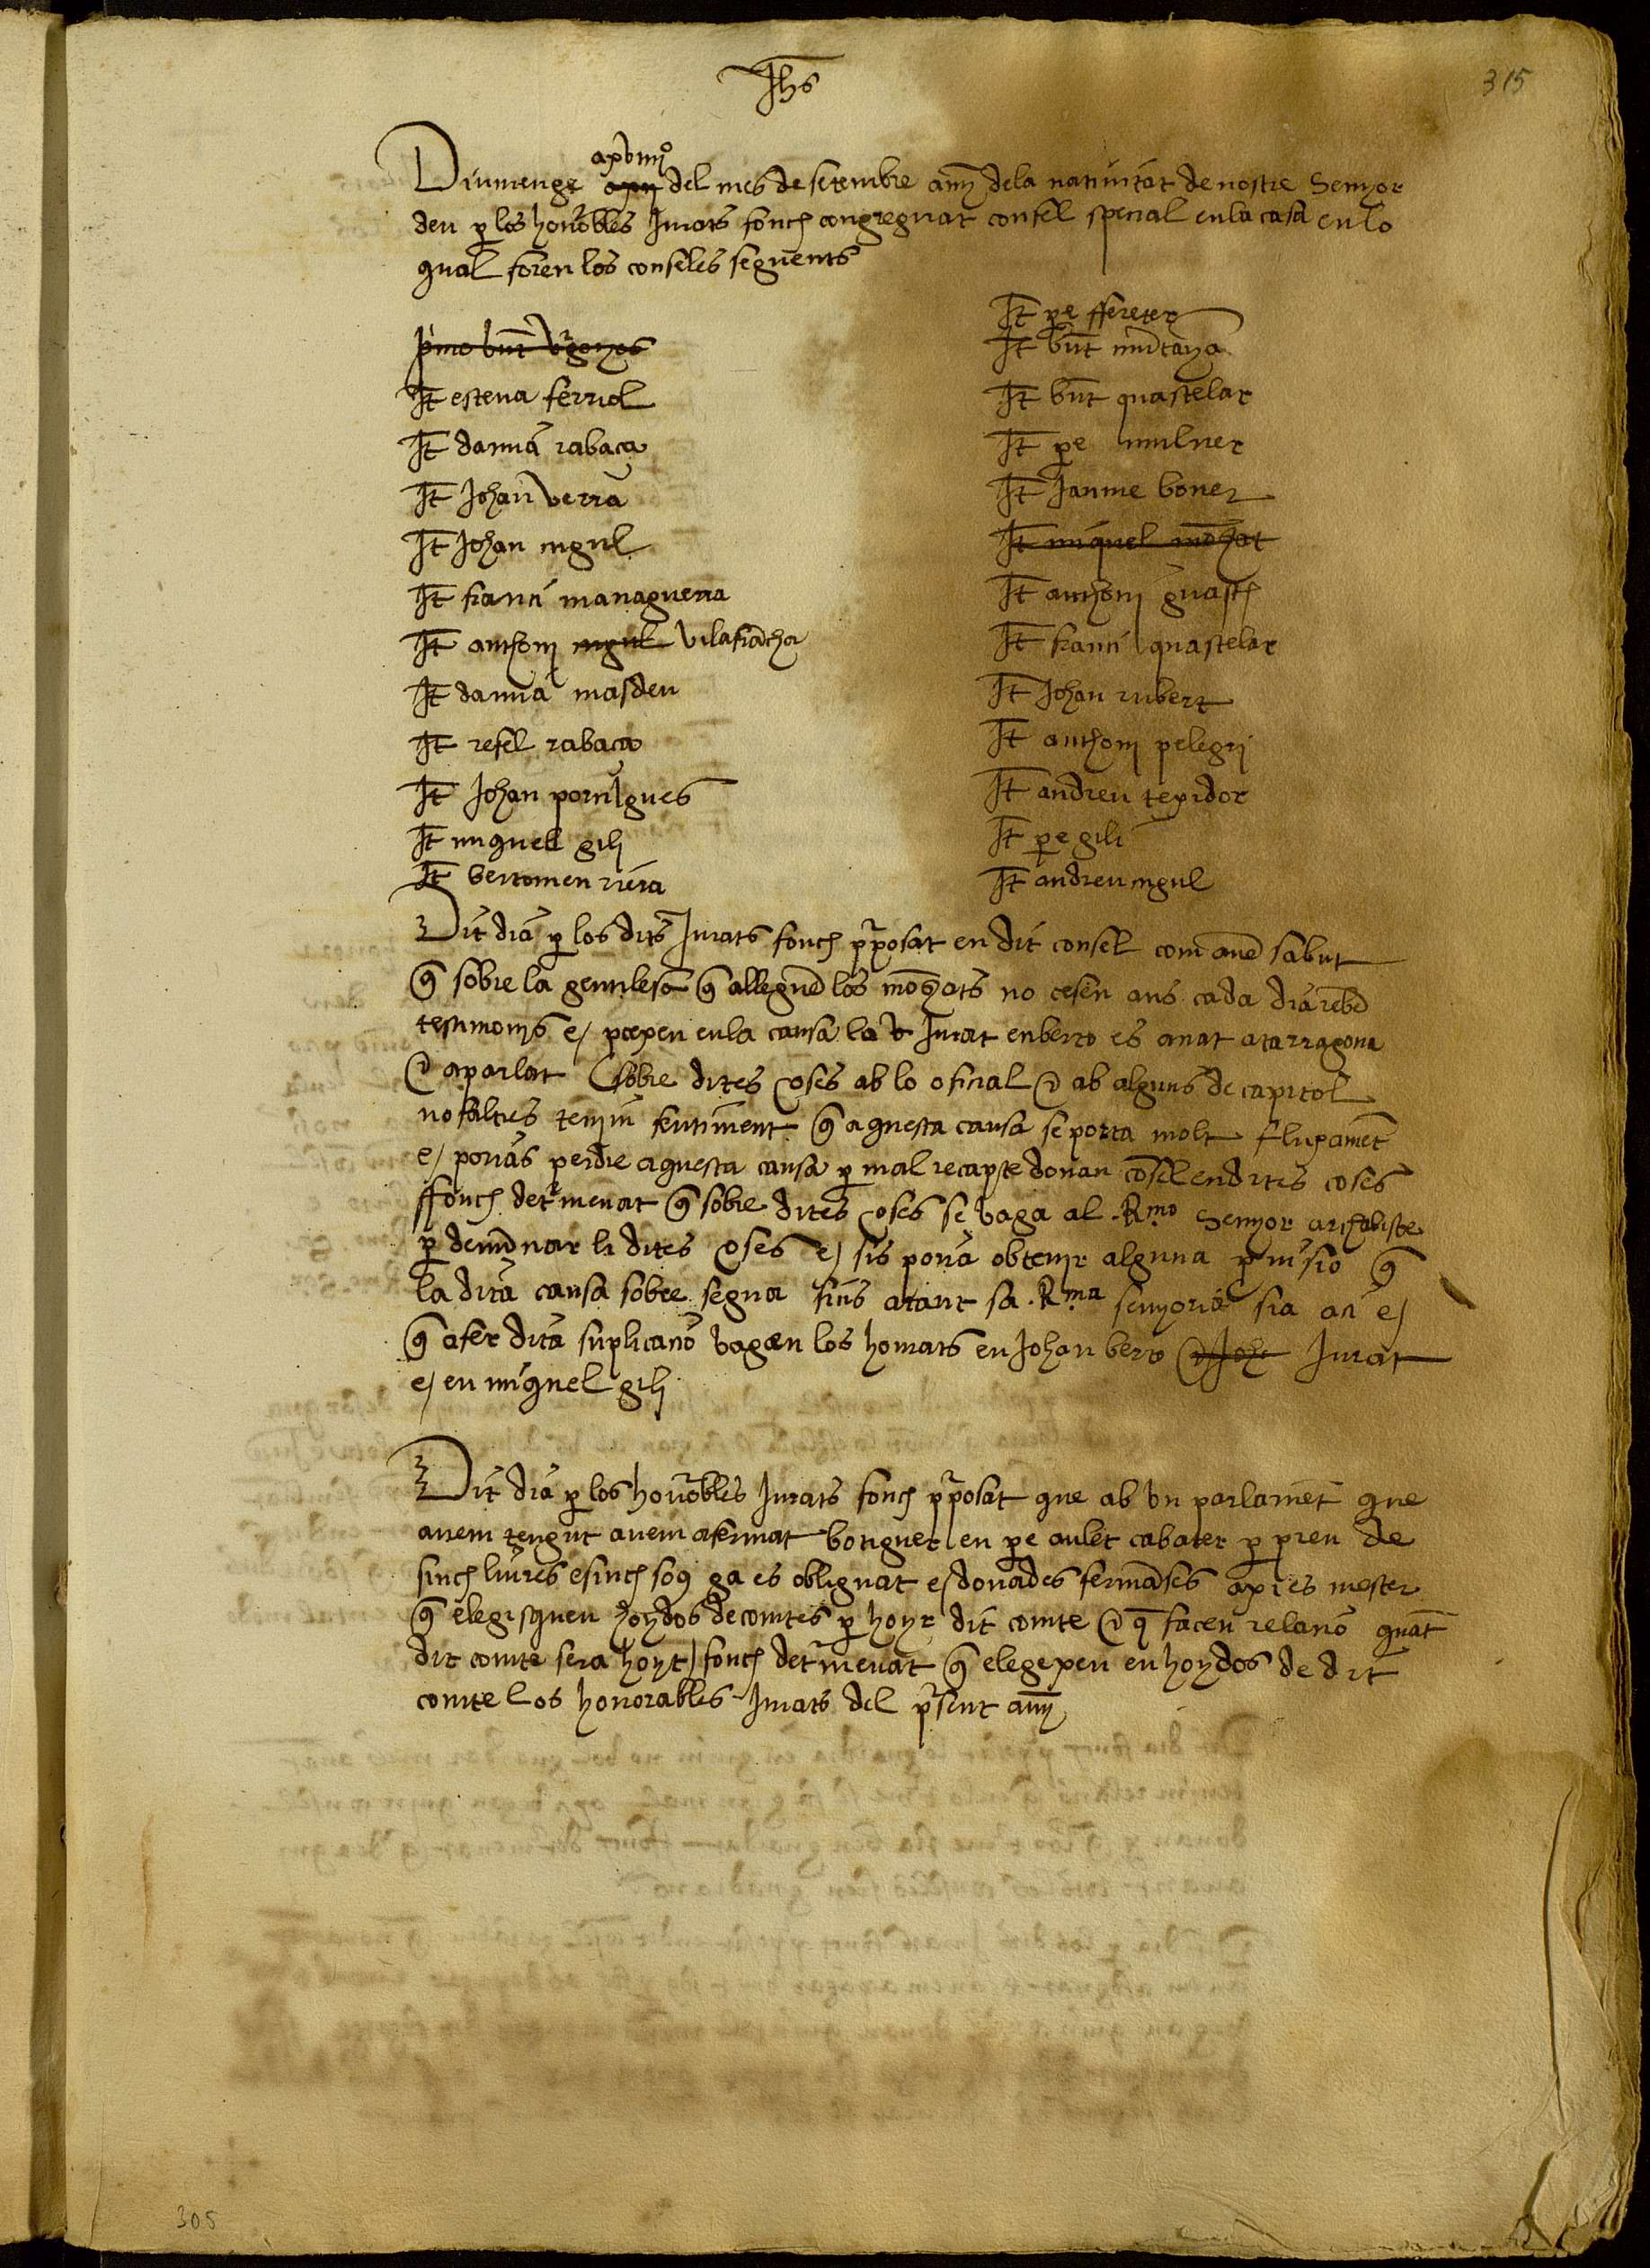 Jhs
315
apviiijº
Diumenge apri del mes de setembre any dela nativitat de nostre Senyor
deu p los honorbles Jurats fonch congreguat consel special en la casa en lo
qual foren los conseles seguents
primo bnt Vrgeyes
It esteva ferriol
It damia rabaça
It Johan verra
It Johan mgul
It franci managuerra
It anthonj mgul vilafrācha
It damia masdeu
It refel rabaça
It Johan portugues
It miquel gilj
It bertomeu riera
It pe ffererer
It bnt mūtanya
It bnt quastelar
It pe mulner
It Jaume bonet
It miquel mōzat
It anthonj guasch
It franci quastelar
It Johan rubert
It anthonj pelegrj
It andreu texidor
It pe gili
It andreu mgul
Dit dia p los dits Jurats fonch pposat en dit consel com avē sabut
q̄ sobre la gentilesa q̄ alleguē los mōzats no cesen ans cada dia rebē
testimonis e pcexen en la causa la Jurat en berto es anat a tarragona
e a parlat sobre dites coses ab lo oficial e ab alguns de capitol
nosaltres tenim sentiment q̄ aquesta causa se porta molt fluxamēt
e porias perdre aquesta causa p mal recapte donan cōsel en dites coses
ffonch detrmenat q̄ sobre dites coses se vaga al .Rmo Senyor archabiste
p demūnar li dites coses e sis poria obtenir alguna pvisio q̄
la dita causa sobre segua fins atant sa .Rma senyoria sia aci e
q̄ a fer dita suplicacio vagen los honrats en Johan berto e Joha Jurat
e en miquel gilj
Dit dia p los honorbles Jurats fonch pposat que ab vn parlamēt que
avem tengut avem afermat botiguer en pe aulet cabater p preu de
sinch liures e sinch sos ga es obliguat e donades fermāses apres mester
q̄ elegisquen hoydos de comtes p hoyr dit comte e q̄ facen relacio quāt
dit comte sera hoyt fonch detrmenat q̄ elegexen en hoydos de dit
comte los honorables Jurats del present any
305